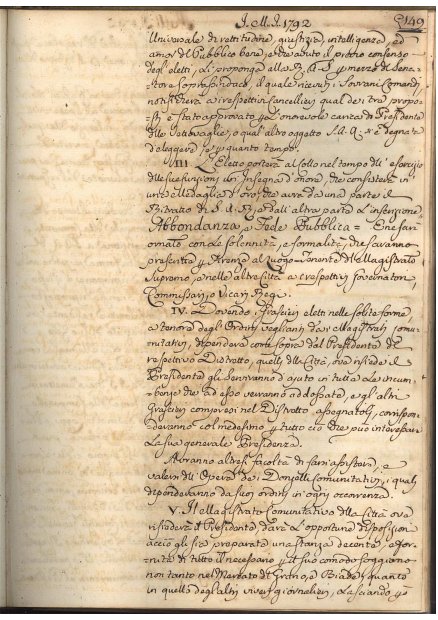 I. M. I. 1792
149
Universale di rettitudine, giustizia, intelligenza, ed
amor del Pubblico bene, e dietro avuto il previo consenso
degl'eletti, li proponga alla R. A. S. per mezzo del Sena-
tore soprasindaco, il quale ricevuti i Sovrani Comandi,
notificherà a' rispettivi Cancellieri qual dei tre propo-
sti è stato approvato per l'onorevole carica di Presidente
delle Vettovaglie, o qual'altro oggetto S. A. R. si è degnata
d'eleggere, e per quanto tempo.
III. L'Eletto porterà al collo nel tempo dell'esercizio
delle sue funzioni un Insegna d'onore, che consisterà in
una Medaglia d'oro, che avrà da una parte il
Ritratto di S. A. R., e dall'altra parte l'inscrizione
Abbondanza, e Fede Pubblica = E ne sarà
ornato con le solennità, e formalità, che saranno
prescritte per Firenze al Luogo-Tenente del Magistrato
Supremo, e nelle altre Città a' respettivi Governatori,
Commissari, o Vicari Regi.
IV. Dovendo i Grascieri eletti nelle solite forme,
a tenore degli Ordini veglianti dai Magistrati Comu-
nitativi, dipendere come sopra dal Presidente del
respettivo Distretto, quelli della Città, ove risiede il
Presidente gli serviranno d'ajuto in tutte le incum-
benze che ad esso verranno addossate, e gl'altri
Grascieri compresi nel Distretto assegnatoli, corrispon-
deranno col medesimo per tutto ciò che può interessare
la sua generale Presidenza.
Avranno altresì facoltà di farsi assistere, e
valersi dell'Opera dei Donzelli Comunitativi, i quali
dipenderanno da suoi ordini in ogni occorrenza.
V. Il Magistrato Comunitativo della Città ove
risiederà il Presidente darà l'opportune disposizioni
acciò gli sia preparata una stanza decente, e for-
nita di tutto il necessario per il suo comodo soggiorno
non tanto nel Mercato di Grano, e Biade, quanto
in quello degl'altri viveri giornalieri, lasciando per